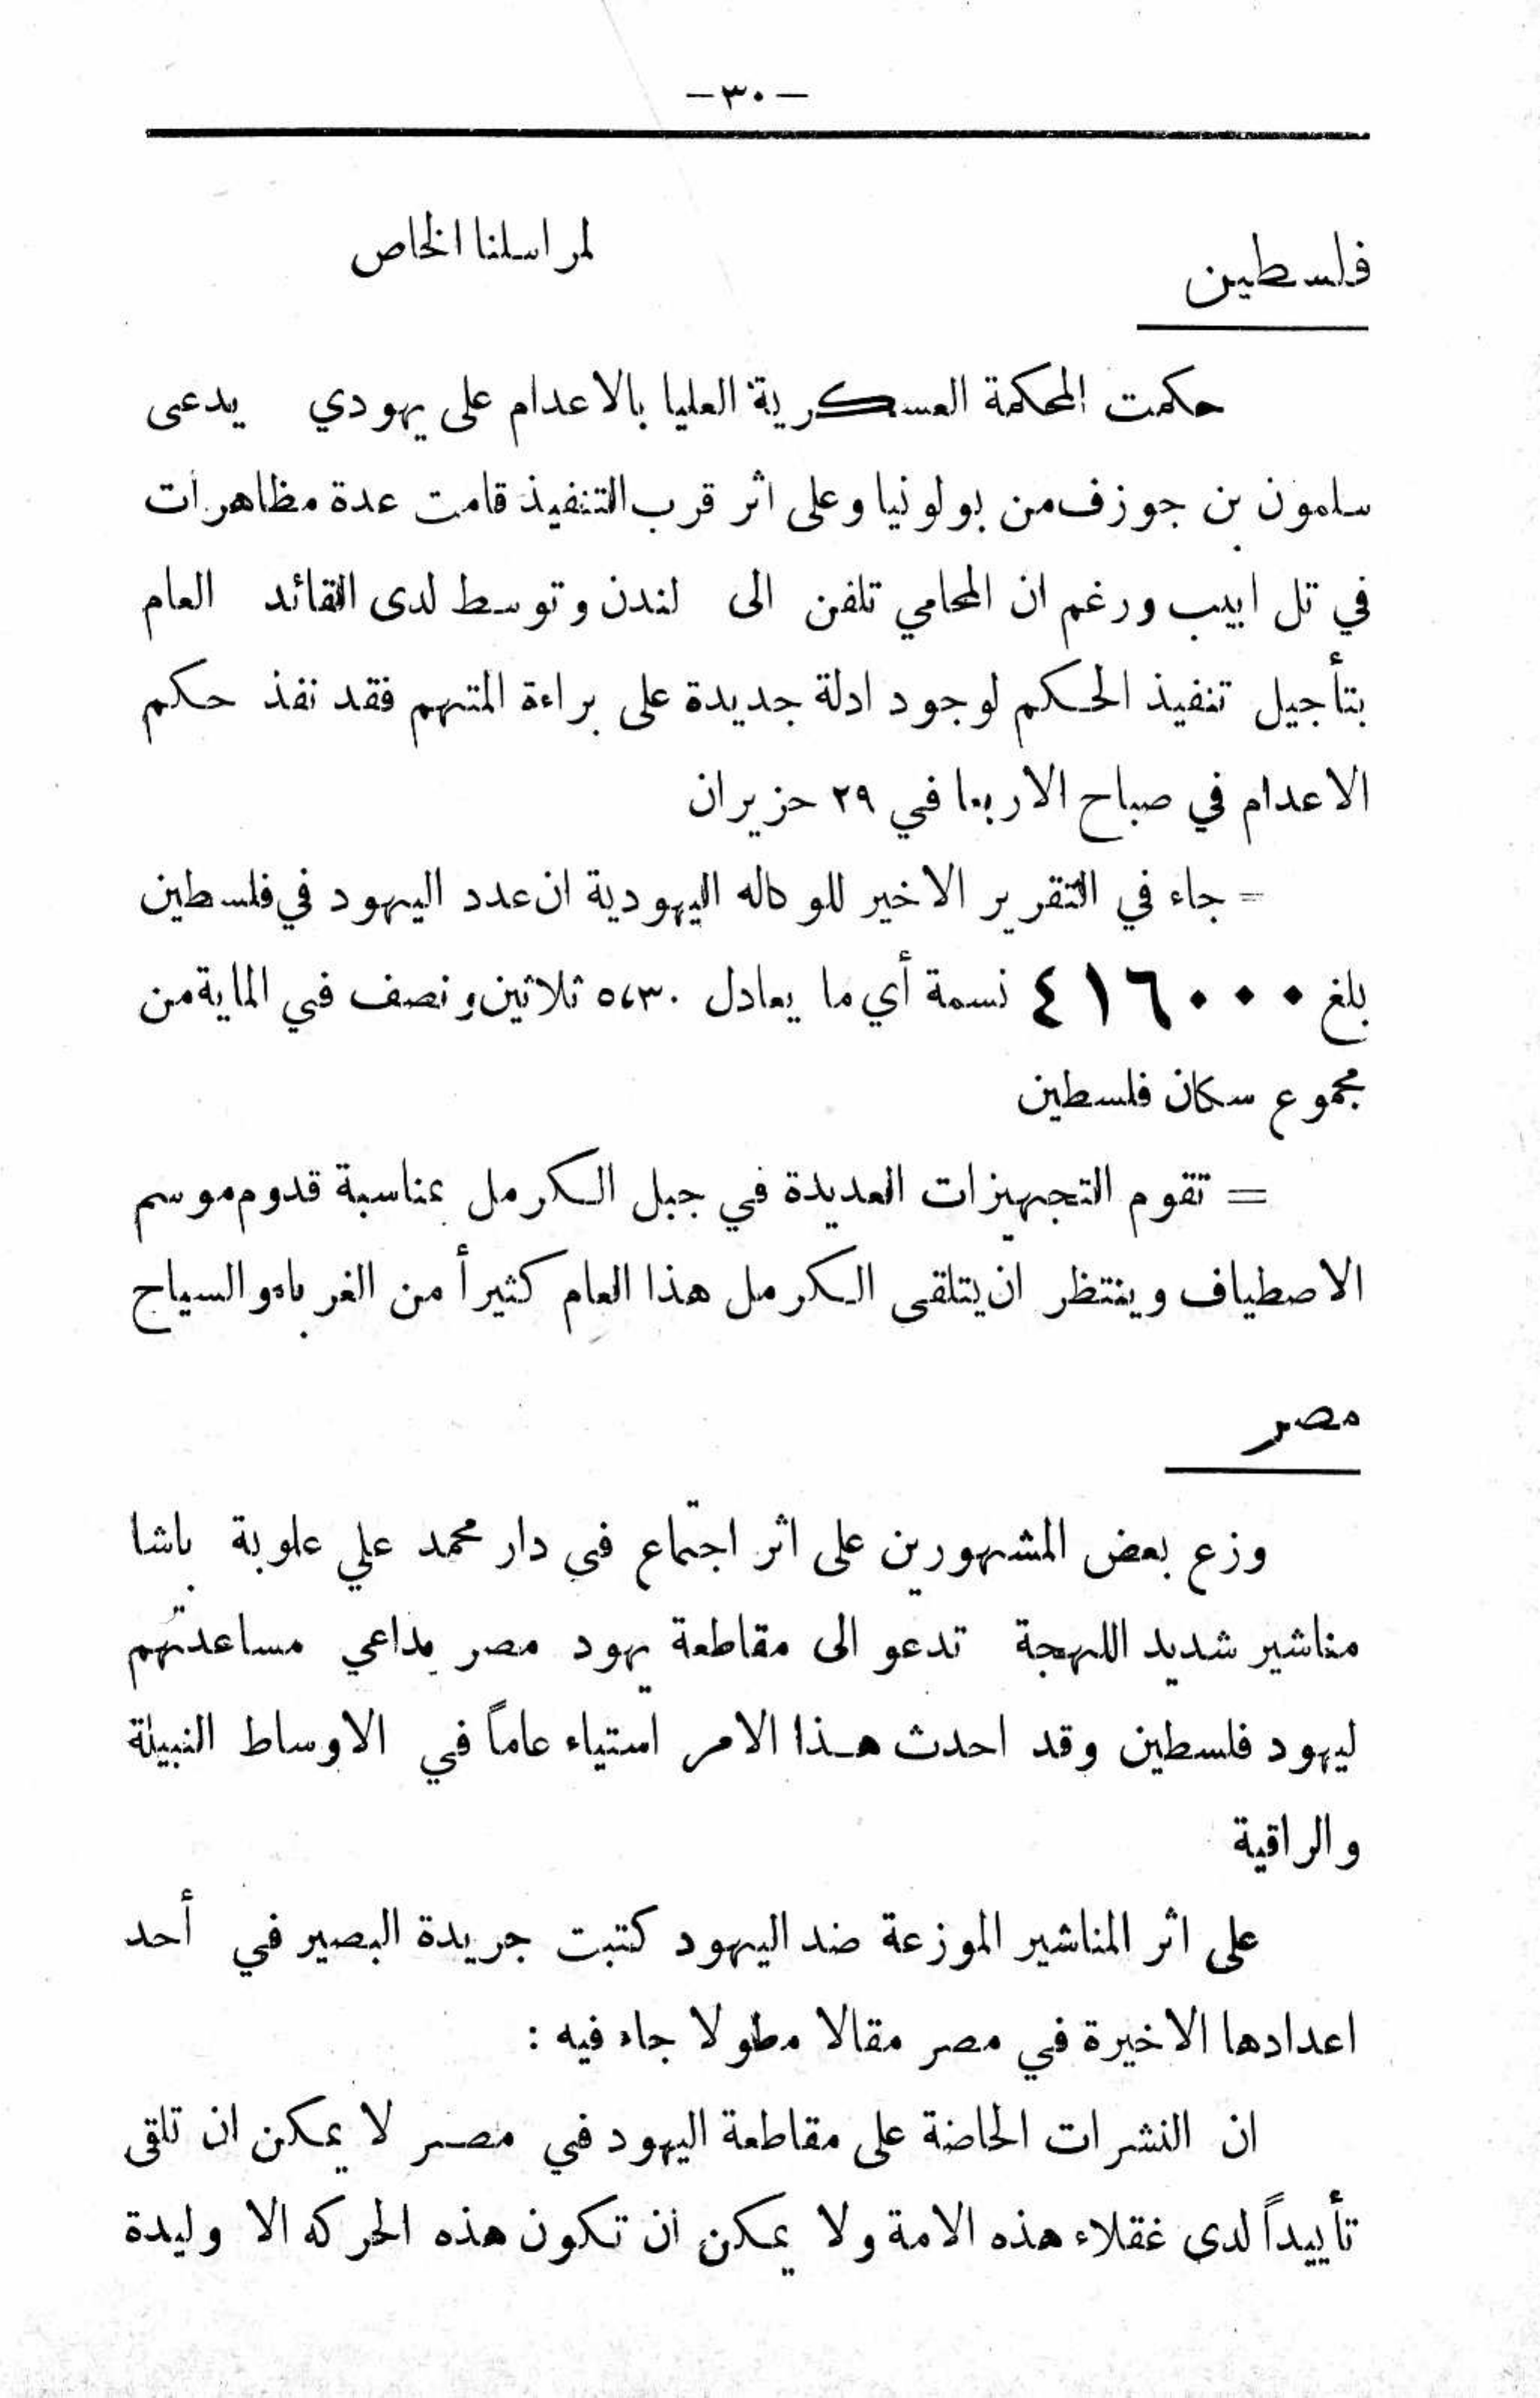 -٣٠-
فلسطين
لمراسلنا الخاص
حكمت المحكمة العسكرية العليا بالاعدام على يهودي يدعى
سلمون بن جوزف من بولونيا وعلى اثر قرب التنفيذ قامت عدة مظاهرات
في تل ابيب ورغم ان المحامي تلفن الى لندن وتوسط لدى القائد العام
بتأجيل تنفيذ الحكم لوجود ادلة جديدة على براءة المتهم فقد نفذ حكم
الاعدام في صباح الاربعا في ٢٩ حزيران
= جاء في التقرير الاخير للوكاله اليهودية ان عدد اليهود في فلسطين
بلغ ٤١٦٠٠٠ نسمة أي ما يعادل ٥،٣٠ ثلاثين ونصف في الماية من
مجموع سكان فلسطين
= تقوم التجهيزات العديدة في جبل الكرمل بمناسبة قدوم موسم
الاصطياف وينتظر ان يتلقى الكرمل هذا العام كثيرأ من الغرباء والسياح
مصر
وزع بعض المشهورين على اثر اجتماع في دار محمد علي علوبة باشا
مناشير شديد اللهجة تدعو الى مقاطعة يهود مصر بداعي مساعدتهم
ليهود فلسطين وقد احدث هذا الامر استياء عاماً في الاوساط النبيلة
والراقية
على اثر المناشير الموزعة ضد اليهود كتبت جريدة البصير في أحد
اعدادها الاخيرة في مصر مقالا مطولا جاء فيه :
ان النشرات الحاضة على مقاطعة اليهود في مصر لا يمكن ان تلقى
تأييداً لدى عقلاء هذه الامة ولا يمكن ان تكون هذه الحركه الا وليدة